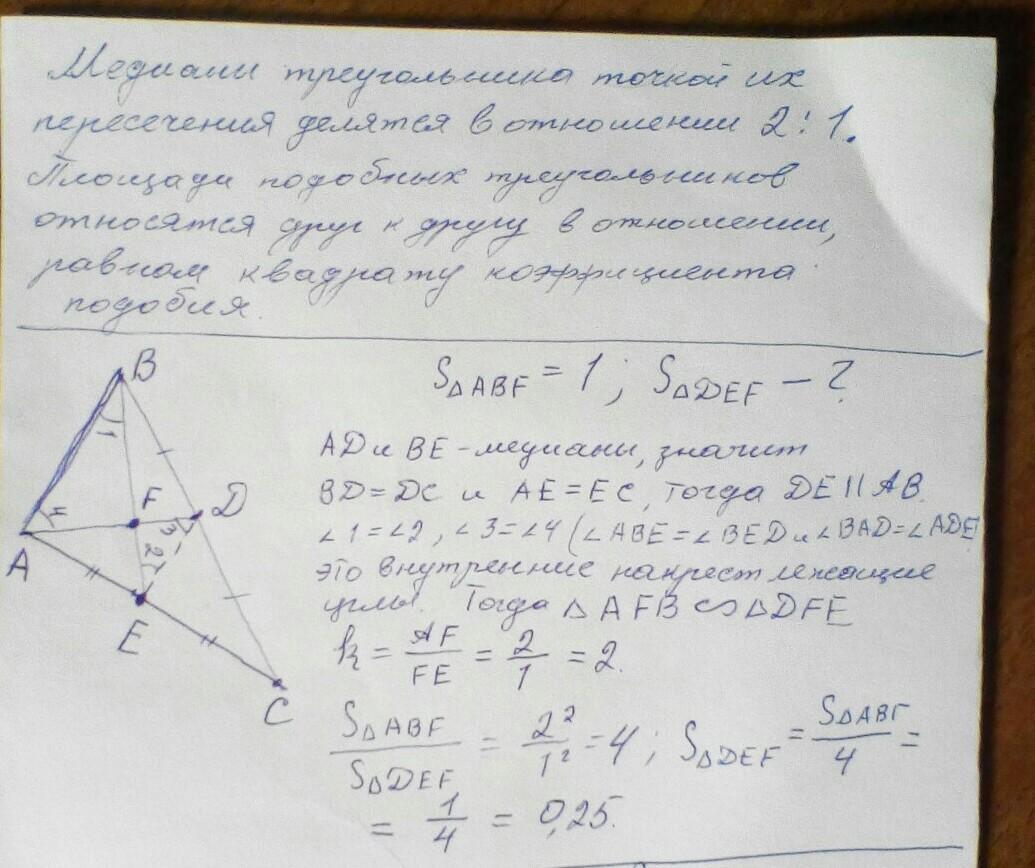 Медианы треугольника точкой их
пересечения делятся в отношении 2:1.
Площади подобных треугольников
относятся друг к другу в отношении,
равном квадрату коэффициента
подобия.
S△ABF = 1; S△DEF – ?
B
1
F
D
3
A
2
E
C
AD и BE - медианы, значит
BD = DC и AE = EC, тогда DE || AB.
∠1 = ∠2, ∠3 = ∠4 (∠ABE = ∠BED и ∠BAD = ∠ADE
это внутренние накрест лежащие
углы. Тогда △AFB ∽ △DFE
k = AF/FE = 2/1 = 2.
S△ABF/S△DEF = 2²/1² = 4; S△DEF = S△ABF/4 =
= 1/4 = 0,25.